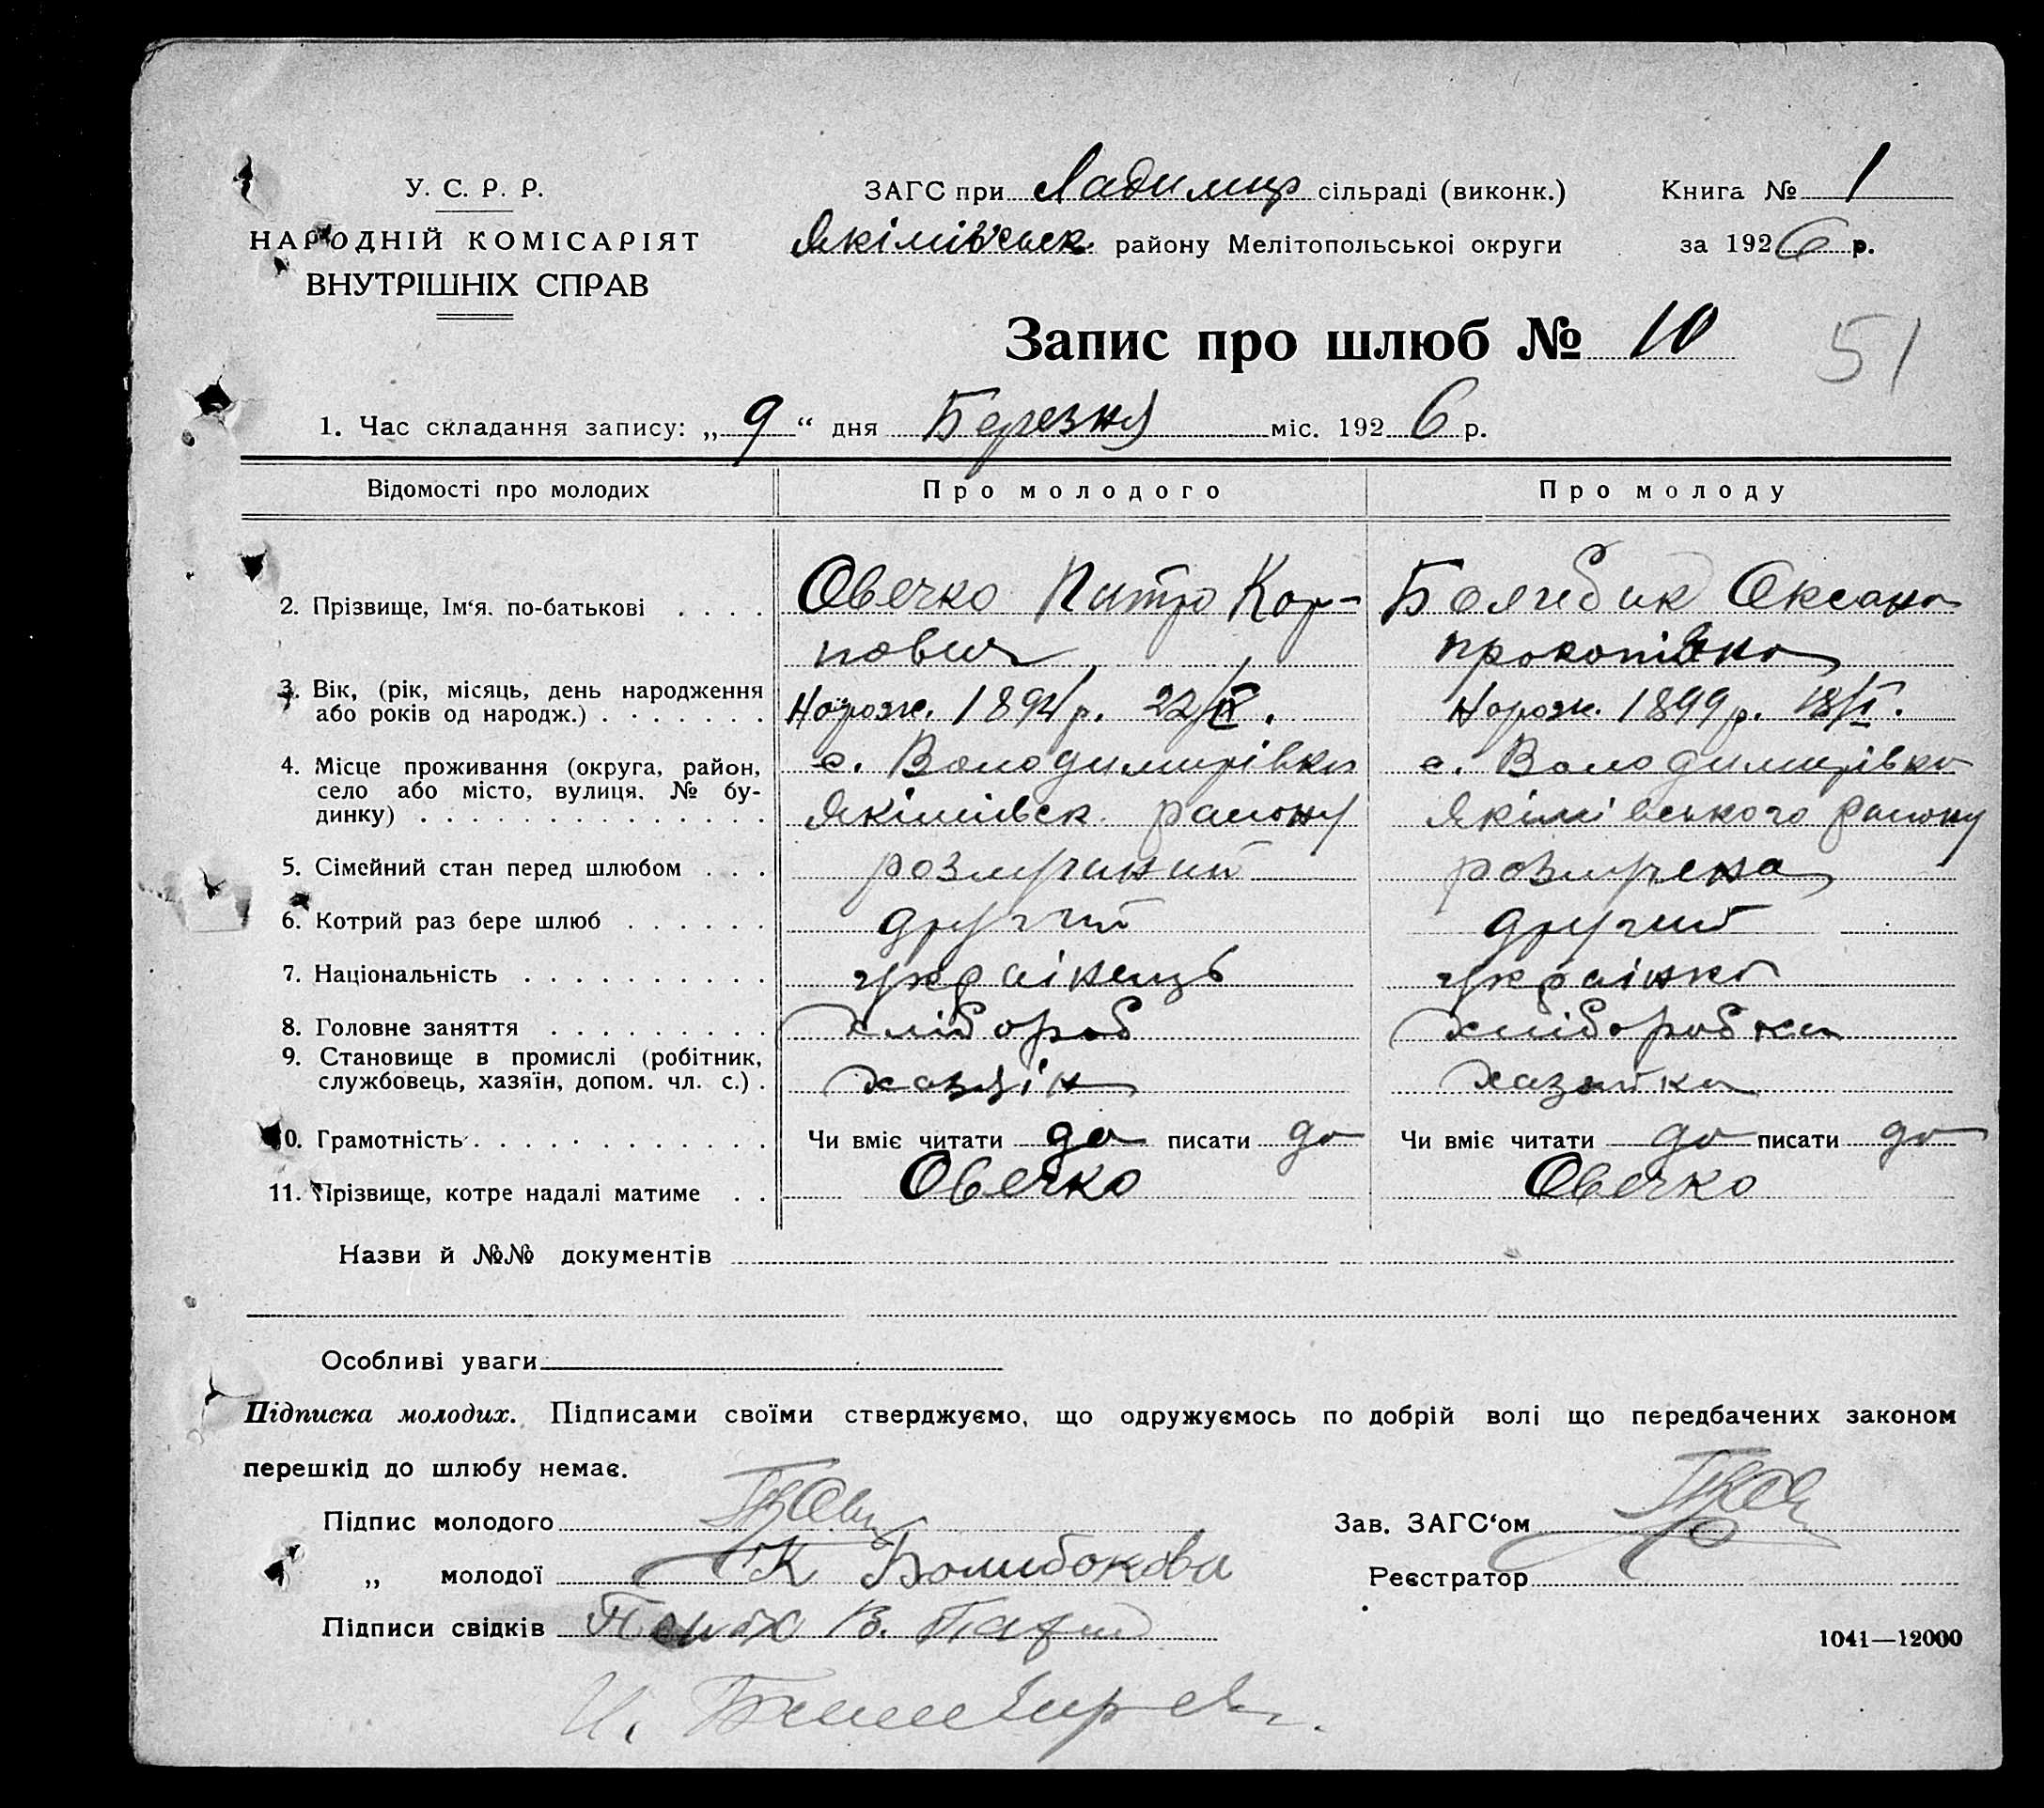 У. С. Р. Р.
НАРОДНІЙ КОМІСАРІЯТ
ВНУТРІШНІХ СПРАВ
ЗАГС при Ладимир сільраді (виконк.) Книга № 1
Якімівськ. району Мелітопольської округи за 1926 р.
Запис про шлюб № 10
51
1. Час складання запису: „9“ дня Березня міс. 1926 р.
Відомості про молодих Про молодого Про молоду
2. Прізвище, Ім‘я. по-батькові . . . . Овечко Питро Кар- Оксана
пович
3. Вік, (рік, місяць, день народження
або років од народж.) . . . . . . . Нарож. 1894 р. 22/IX. Нарож. 1899 р. 18/I.
4. Місце проживання (округа, район, с. Володимирівка с. Володимирівка
село або місто, вулиця, № бу-
динку) . . . . . . . . . . . . . . Якімівск. району Якімівського району
5. Сімейний стан перед шлюбом . . . розлучиний розлучена
6. Котрий раз бере шлюб . . . . . . другий другий
7. Національність . . . . . . . . . . українець українка
8. Головне заняття . . . . . . . . . хлібороб хліборобка
9. Становище в промислі (робітник,
службовець, хазяїн, допом. чл. с.) . хазяін хазяйка
10. Грамотність . . . . . . . . . . . . Чи вміє читати да писати да Чи вміє читати да писати да
11. Прізвище, котре надалі матиме . . Овечко Овечко
Назви й №№ документів
Особливі уваги
Підписка молодих. Підписами своїми стверджуємо, що одружуємось по добрій волі що передбачених законом
перешкід до шлюбу немає.
Підпис молодого Зав. ЗАГС‘ом
„ молодої К Болибокова Реєстратор
Підписи свідків В.
1041—12000
И.